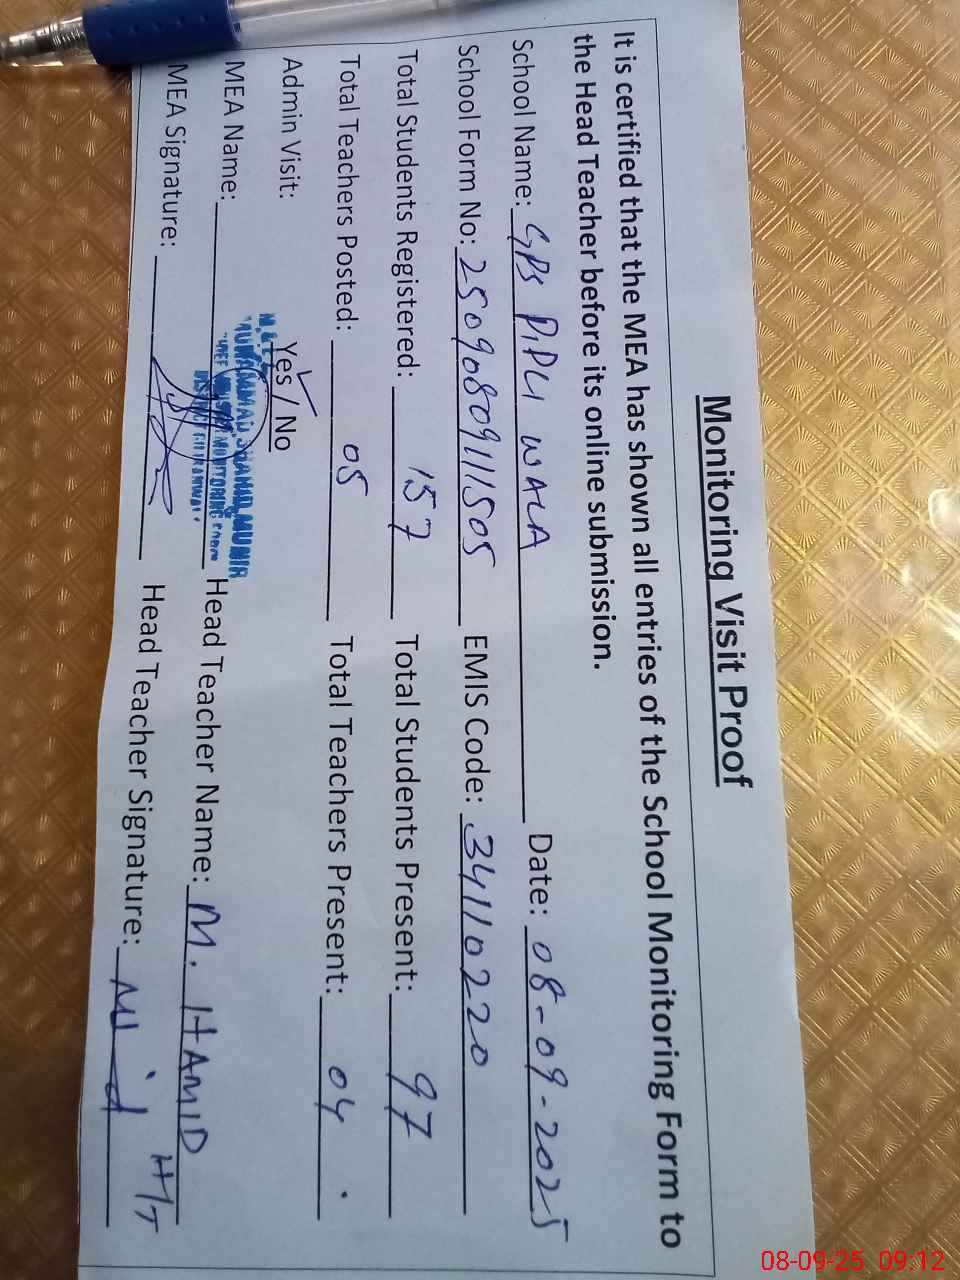 Monitoring Visit Proof
It is certified that the MEA has shown all entries of the School Monitoring Form to
the Head Teacher before its online submission.
School Name: GPS PIPLI WALA Date: 08-09-2025
School Form No: 2509080911505 EMIS Code: 34110220
Total Students Registered: 157 Total Students Present: 97
Total Teachers Posted: 05 Total Teachers Present: 04
Admin Visit: Yes / No
MEA Name: MUHAMMAD SHAHID MUNIR Head Teacher Name: M. HAMID
MEA Signature: Head Teacher Signature: H/T
08-09-25 09:12